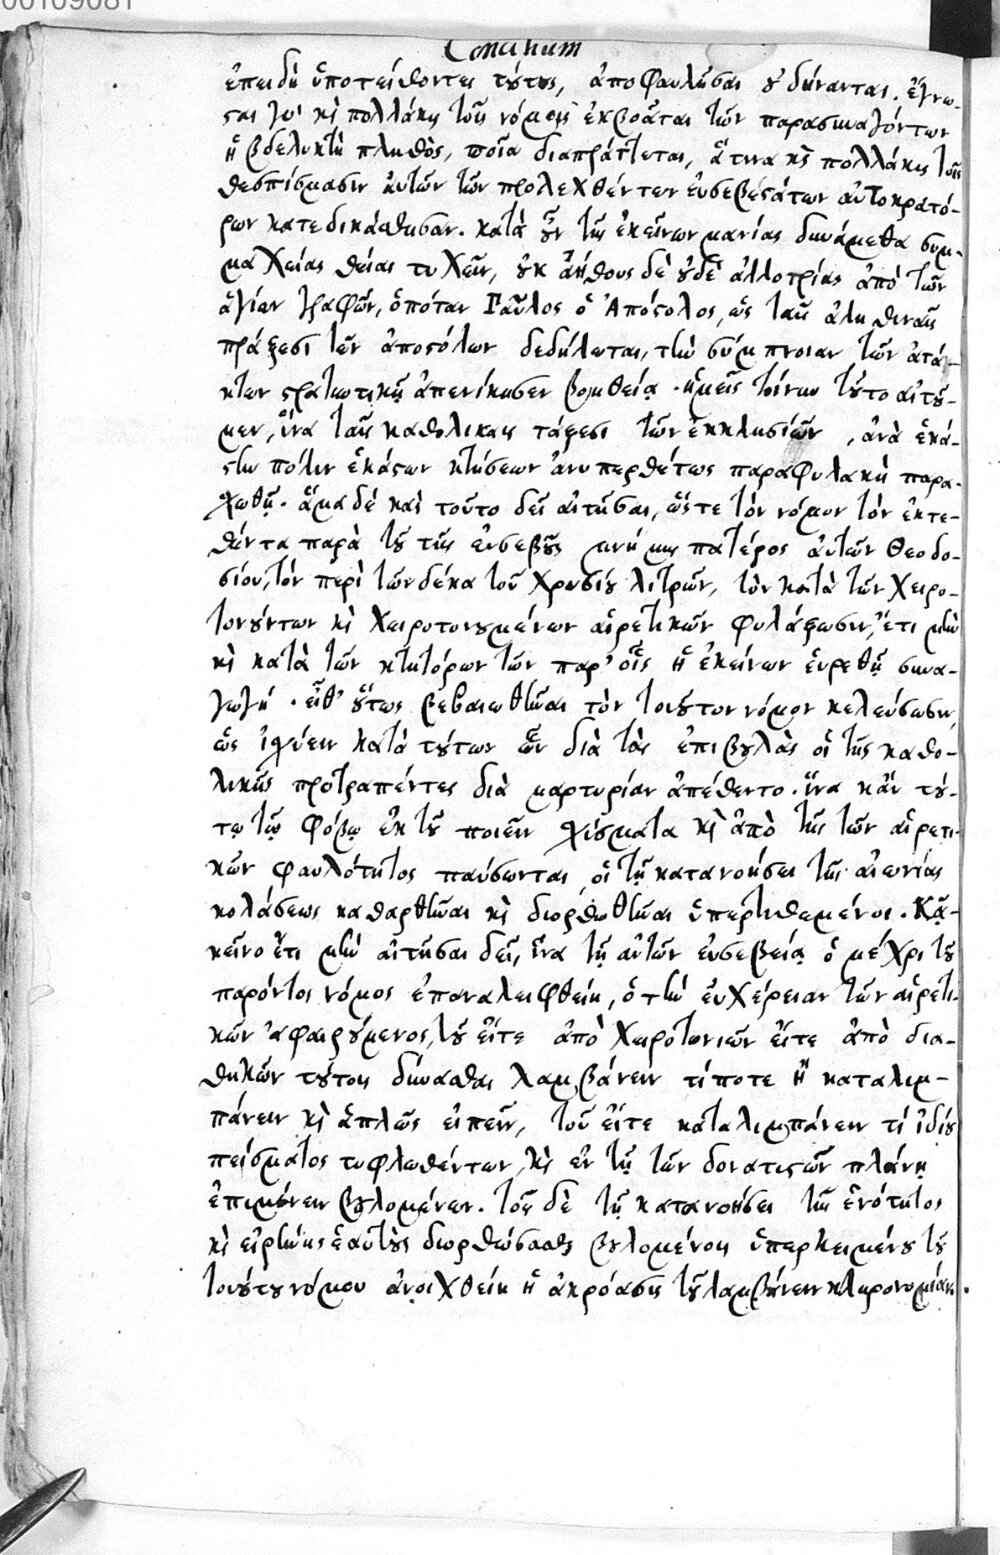 00109081
Concilium
ἐπειδὴ ὑποπείθοντες τούτους, ἀποφαυλῆσαι οὐ δύνανται. ἔγνω-
σαι γὰρ καὶ πολλάκις τοῖς νόμοις ἐκβοᾶται τῶν παρασυναγόντων
ἡ βδελυκτὴ πληθὺς, ποῖα διαπράττεται, ἅτινα καὶ πολλάκις τοῖς
θεσπίσμασιν αὐτῶν τῶν προλεχθέντων εὐσεβεστάτων αὐτοκρατό-
ρων κατεδικάσθησαν. κατὰ οὖν τῆς ἐκείνων μανίας δυνάμεθα συμ-
μαχείας θείας τυχεῖν, οὐκ ἀήθους δὲ οὐδὲ ἀλλοτρίας ἀπὸ τῶν
ἁγίων γραφῶν, ὁπόταν Παῦλος ὁ Ἀπόστολος, ὡς ταῖς ἀληθιναῖς
πράξεσι τῶν ἀποστόλων δεδήλωται, τὴν σύμπνοιαν τῶν ἀτά-
κτων στρατιωτικῇ ἀπενίκησεν βοηθείᾳ. ἡμεῖς τοίνυν τοῦτο αἰτοῦ-
μεν, ἵνα ταῖς καθολικαῖς τάξεσι τῶν ἐκκλησιῶν, ἀνὰ ἑκά-
στην πόλιν ἑκάστων κτήσεων ἀνυπερθέτως παραφυλακὴ παρα-
σχωθῇ. ἅμα δὲ καὶ τοῦτο δεῖ αἰτῆσαι, ὥστε τὸν νόμον τὸν ἐκτε-
θέντα παρὰ τοῦ τῆς εὐσεβοῦς μνήμης πατέρος αὐτῶν Θεοδο-
σίου, τὸν περὶ τῶν δέκα τοῦ χρυσίου λιτρῶν, τὸν κατὰ τῶν χειρο-
τονούντων καὶ χειροτονουμένων αἱρετικῶν φυλάξωσιν, ἔτι μὴν
καὶ κατὰ τῶν κτητόρων τῶν παρ' οἷς ἡ ἐκείνων εὑρεθῇ συνα-
γωγή. εἶθ' οὕτως βεβαιωθῆναι τὸν τοιοῦτον νόμον κελεύσωσιν,
ὡς ἰσχύειν κατὰ τούτων ὧν διὰ τὰς ἐπιβουλὰς οἱ τῆς καθο-
λικῆς προτραπέντες διὰ μαρτυρίαν ἀπέθεντο. ἵνα κἂν τού-
τῳ τῷ φόβῳ ἐκ τοῦ ποιεῖν σχίσματα καὶ ἀπὸ τῆς τῶν αἱρετι-
κῶν φαυλότητος παύσωνται, οἱ τῇ κατανοήσει τῆς αἰωνίας
κολάσεως καθαρθῆναι καὶ διορθωθῆναι ὑπερτιθεμένοι. Κᾀ-
κεῖνο ἔτι μὴν αἰτῆσαι δεῖ, ἵνα τῇ αὐτῶν εὐσεβείᾳ ὁ μέχρι τοῦ
παρόντος νόμος ἐπαναλειφθείη, ὁ τὴν εὐχέρειαν τῶν αἱρετι-
κῶν ἀφαιρούμενος, τοῦ εἴτε ἀπὸ χειροτονιῶν εἴτε ἀπὸ δια-
θηκῶν τούτοις δύνασθαι λαμβάνειν τίποτε ἢ καταλιμ-
πάνειν καὶ ἁπλῶς εἰπεῖν, τοῦ εἴτε καταλιμπάνειν τί ἰδίου
πείσματος τυφλωθέντων, καὶ ἐν τῇ τῶν δονατιστῶν πλάνῃ
ἐπιμένειν βουλομένων. τοῖς δὲ τῇ κατανοήσει τῆς ἑνότητος
καὶ εἰρήνης ἑαυτοὺς διορθώσασθαι βουλομένοις ὑπερκειμένου τοῦ
τοιούτου νόμου ἀνοιχθείη ἡ ἀκρόασις τοῦ λαμβάνειν κληρονομίαν.